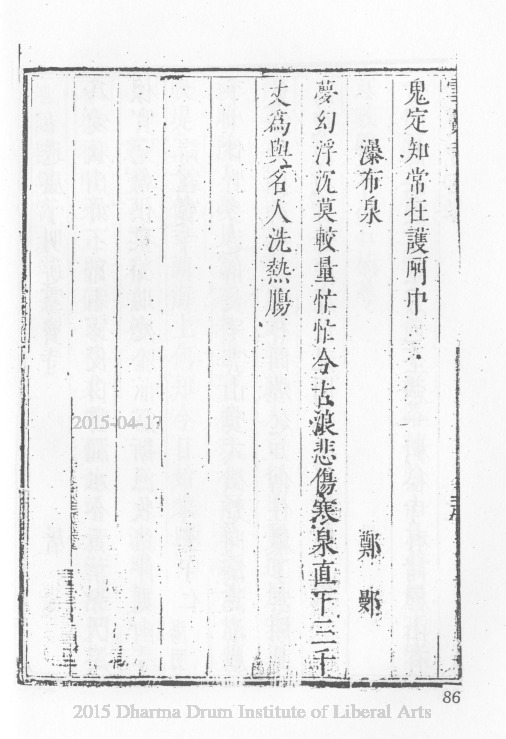 鬼定知常在護呵中
瀑布泉
鄭鄤
夢幻浮沉莫較量忙忙今古浪悲傷寒泉直下三千
丈為與名人洗熱腸
2015-04-17
86
2015 Dharma Drum Institute of Liberal Arts